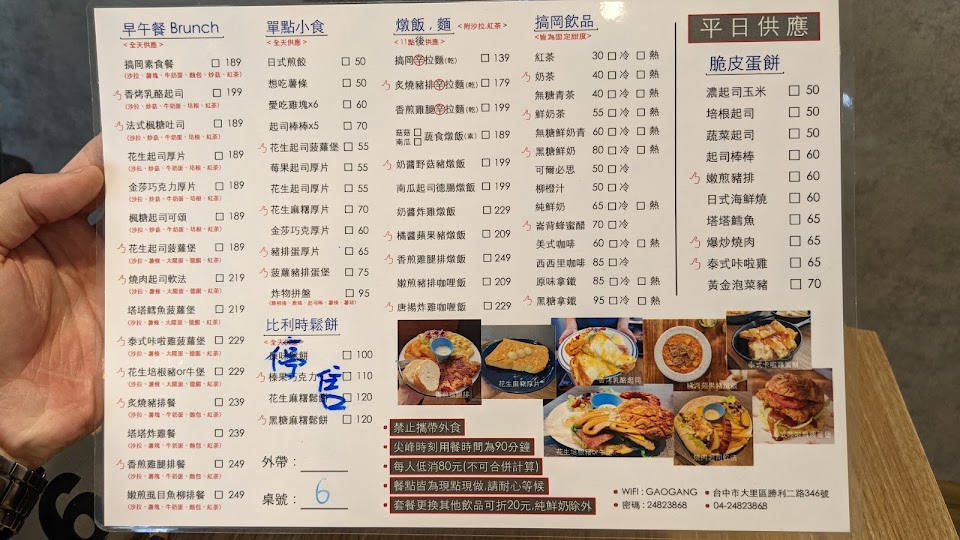 早午餐 Brunch
<全天供應>
搞岡素食餐 □ 189
(沙拉、薯塊、牛奶蛋、麵包、炒菇、紅茶)
香烤乳酪起司 □ 199
(沙拉、炒菇、牛奶蛋、培根、紅茶)
法式楓糖吐司 □ 189
(沙拉、炒菇、牛奶蛋、培根、紅茶)
花生起司厚片 □ 189
(沙拉、炒菇、牛奶蛋、培根、紅茶)
金莎巧克力厚片 □ 189
(沙拉、炒菇、牛奶蛋、培根、紅茶)
楓糖起司可頌 □ 189
(沙拉、炒菇、牛奶蛋、培根、紅茶)
花生起司菠蘿堡 □ 189
(沙拉、薯條、太陽蛋、德腸、紅茶)
燒肉起司軟法 □ 219
(沙拉、薯條、太陽蛋、德腸、紅茶)
塔塔鱈魚菠蘿堡 □ 219
(沙拉、薯條、太陽蛋、德腸、紅茶)
泰式咔啦雞菠蘿堡 □ 229
(沙拉、薯條、太陽蛋、德腸、紅茶)
花生培根豬or牛堡 □ 229
(沙拉、薯條、太陽蛋、德腸、紅茶)
炙燒豬排餐 □ 239
(沙拉、薯塊、牛奶蛋、麵包、紅茶)
塔塔炸雞餐 □ 239
(沙拉、薯塊、牛奶蛋、麵包、紅茶)
香煎雞腿排餐 □ 249
(沙拉、薯塊、牛奶蛋、麵包、紅茶)
嫩煎虱目魚柳排餐 □ 249
(沙拉、薯塊、牛奶蛋、麵包、紅茶)
單點小食
<全天供應>
日式煎餃 □ 50
想吃薯條 □ 50
愛吃雞塊x6 □ 60
起司棒棒x5 □ 70
花生起司菠蘿堡 □ 55
莓果起司厚片 □ 55
花生起司厚片 □ 55
花生麻糬厚片 □ 70
金莎巧克力厚片 □ 60
豬排蛋厚片 □ 65
菠蘿豬排蛋堡 □ 75
炸物拼盤 □ 95
比利時鬆餅
味鬆餅 □ 100
榛果巧克力 □ 110
花生麻糬鬆餅 □ 120
黑糖麻糬鬆餅 □ 120
停售
外帶：
桌號： 6
燉飯，麵 <附沙拉,紅茶>
<11點後供應>
搞岡辛拉麵(乾) □ 139
炙燒豬排辛拉麵(乾) □ 179
香煎雞腿辛拉麵(乾) □ 199
菇菇□ 南瓜□ 蔬食燉飯(素) □ 189
奶醬野菇豬燉飯 □ 199
南瓜起司德腸燉飯 □ 199
奶醬炸雞燉飯 □ 229
橘醬蘋果豬燉飯 □ 209
香煎雞腿排燉飯 □ 249
嫩煎豬排咖哩飯 □ 209
唐揚炸雞咖哩飯 □ 229
搞岡飲品
<皆為固定甜度>
紅茶 30 □ 冷 □ 熱
奶茶 40 □ 冷 □ 熱
無糖青茶 40 □ 冷 □ 熱
鮮奶茶 55 □ 冷 □ 熱
無糖鮮奶青 60 □ 冷 □ 熱
黑糖鮮奶 80 □ 冷 □ 熱
可爾必思 50 □ 冷
柳橙汁 50 □ 冷
純鮮奶 65 □ 冷 □ 熱
崙背蜂蜜醋 70 □ 冷
美式咖啡 60 □ 冷 □ 熱
西西里咖啡 85 □ 冷
原味拿鐵 85 □ 冷 □ 熱
黑糖拿鐵 95 □ 冷 □ 熱
平日供應
脆皮蛋餅
濃起司玉米 □ 50
培根起司 □ 50
蔬菜起司 □ 50
起司棒棒 □ 60
嫩煎豬排 □ 60
日式海鮮燒 □ 60
塔塔鱈魚 □ 65
爆炒燒肉 □ 65
泰式咔啦雞 □ 65
黃金泡菜豬 □ 70
花生麻糬厚片
香烤乳酪起司
橘醬蘋果豬燉飯
泰式咔啦雞蛋餅
花生培根豬or牛堡
燒肉起司軟法
• 禁止攜帶外食
• 尖峰時刻用餐時間為90分鐘
• 每人低消80元(不可合併計算)
• 餐點皆為現點現做,請耐心等候
• 套餐更換其他飲品可折20元,純鮮奶除外
• WIFI : GAOGANG
• 密碼 : 24823868
• 台中市大里區勝利二路346號
• 04-24823868